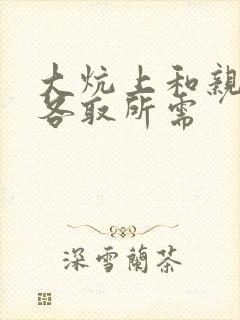 大炕上和親
各取所需
深雪蘭茶